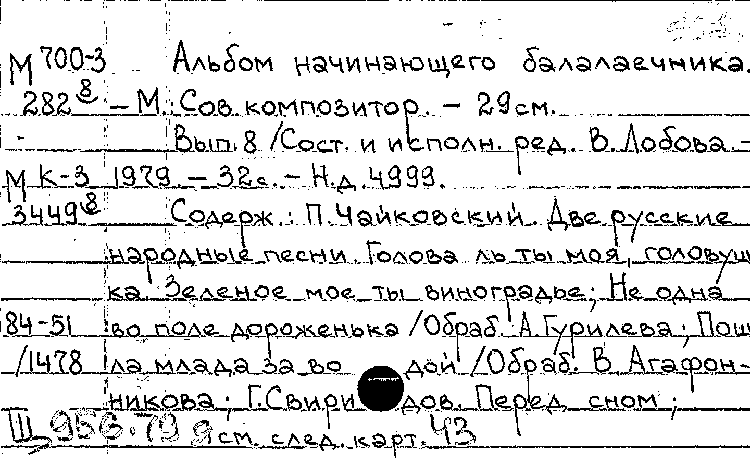 М 700-3 Альбом начинающего балалаечника.
282 8 – М.: Сов. композитор. – 29 см.
Вып. 8 / Сост. и исполн. ред. В. Лобова –
М К-3 1979. – 32 с. – Н.д. 4999.
3449 8 Содерж.: П. Чайковский. Две русские
народные песни. Голова ль ты моя, головуш
ка. Зеленое мое ты виноградье; Не одна
84-51 во поле дороженька / Обраб. А. Гурилева; Пош
/1478 ла млада за во дой / Обраб. В. Агафон-
никова; Г. Свири дов. Перед сном;
Щ 956.79 я см. след. карт. ЧЗ